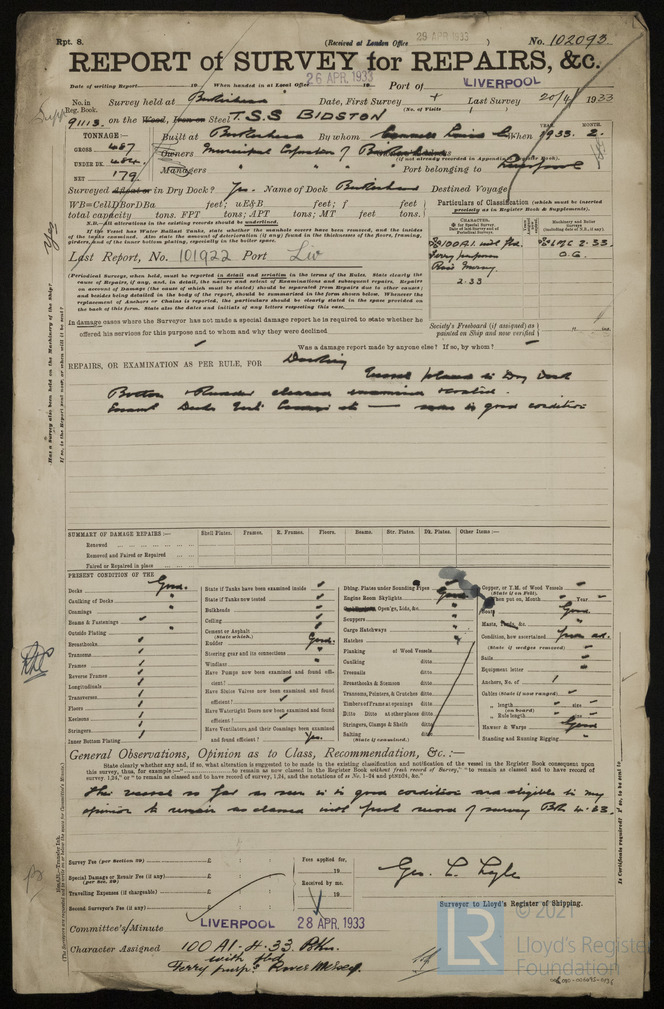 Rpt. 8. (Received at London Office 29 APR. 1933 ) No. 102093
REPORT of SURVEY for REPAIRS, &c.
Date of writing Report 19 When handed in at Local Office 26 APR. 1933 Port of LIVERPOOL
No. in Reg. Book. Survey held at Birkenhead Date, First Survey Last Survey 20/4/ 1933
(No. of Visits )
91113. on the Wood, Iron or Steel T.S.S BIDSTON
TONNAGE:- Built at Birkenhead By whom Cammell Laird & Co When 1933. 2.
YEAR. MONTH.
GROSS 487 Owners Municipal Corporation of Birkenhead
(If not already recorded in Appendix to Register Book.)
UNDER DK. 484. Managers " " " " Port belonging to Liverpool
NET 179.
Surveyed Afloat or in Dry Dock? Yes. Name of Dock Birkenhead Destined Voyage
WB=CellDBorDBa feet; uE&B feet; f feet
total capacity tons. FPT tons; APT tons; MT feet tons.
Particulars of Classification (which must be inserted precisely as in Register Book & Supplements).
If the Vessel has Water Ballast Tanks, state whether the manhole covers have been removed, and the insides of the tanks examined. Also state the amount of deterioration (if any) found in the thicknesses of the floors, framing, girders, and of the inner bottom plating, especially in the boiler space.
N.B.—All alterations in the existing records should be underlined.
Last Report, No. 101922 Port Liv
CHARACTER. Machinery and Boiler Surveys
100A1. with fbd.
LMC 2.33
Ferry purposes O.G.
River Mersey.
2.33
(Periodical Surveys, when held, must be reported in detail and seriatim in the terms of the Rules. State clearly the cause of Repairs, if any, and, in detail, the nature and extent of Examinations and subsequent repairs. Repairs on account of Damage (the cause of which must be stated) should be separated from Repairs due to other causes; and besides being detailed in the body of the report, should be summarized in the form shown below. Whenever the replacement of Anchors or Chains is reported, the particulars should be clearly stated in the space provided on the back of this form. State also the dates and initials of any letters respecting this case.)
In damage cases where the Surveyor has not made a special damage report he is required to state whether he offered his services for this purpose and to whom and why they were declined
Society's Freeboard (if assigned) as painted on Ship and now verified
Was a damage report made by anyone else? If so, by whom?
REPAIRS, OR EXAMINATION AS PER RULE, FOR Docking
Vessel placed in Dry Dock
Bottom & Rudder cleaned examined & coated.
SUMMARY OF DAMAGE REPAIRS:— Shell Plates. Frames. R. Frames. Floors. Beams. Str. Plates. Dk. Plates. Other Items:—
Renewed
Removed and Faired or Repaired
Faired or Repaired in place
PRESENT CONDITION OF THE
Decks Good.
Caulking of Decks "
Coamings "
Beams & Fastenings
Outside Plating "
Breasthooks
Transoms
Frames
Reverse Frames
Longitudinals
Transverses
Floors
Keelsons
Stringers
Inner Bottom Plating
State if Tanks have been examined inside
State if Tanks now tested
Bulkheads
Ceiling
Cement or Asphalt
(State which.)
Rudder Good.
Steering gear and its connections "
Windlass "
Have Pumps now been examined and found efficient?
Have Sluice Valves now been examined and found efficient?
Have Watertight Doors now been examined and found efficient?
Have Ventilators and their Coamings been examined and found efficient? Yes.
Dblng. Plates under Sounding Pipes
Engine Room Skylights Good
Open'gs, Lids, &c. "
Scuppers "
Cargo Hatchways "
Hatches "
Planking of Wood Vessels
Caulking ditto
Treenails ditto
Breasthooks & Stemson ditto
Transoms, Pointers, & Crutches ditto
Timbers of Frame at openings ditto
Ditto Ditto At other places ditto
Stringers, Clamps & Shelfs ditto
Salting ditto
(State if examined.)
Copper, or Y.M. of Wood Vessels
(State if on Felt.)
When put on, Month Year
Boats Good
Masts, Yards, &c. "
Condition, how ascertained from dk.
(State if wedges removed)
Sails
Equipment letter
Anchors, No. of
Cables (State if now ranged)
" length (on board)
" Rule length
Hawser & Warps Good
Standing and Running Rigging "
General Observations, Opinion as to Class, Recommendation, &c.:—
State clearly whether any, and if so, what alteration is suggested to be made in the existing classification and notification of the vessel in the Register Book consequent upon this survey, thus, for example:—" to remain as now classed in the Register Book without fresh record of Survey," "to remain as classed and to have record of survey 1,24," or "to remain as classed and to have record of survey, 1,24, and the notations of
This vessel so far as seen is in good condition and eligible in my
opinion to remain as classed with fresh record of survey Bhn 4.33.
Survey Fee (per Section 29) £ : :
Special Damage or Repair Fee (if any) £ : :
(per Sec. 29)
Travelling Expenses (if chargeable) £ : :
Second Surveyor's Fee (if any) £ : :
Fees applied for,
19
Received by me,
19
Geo. L. Lyle
Surveyor to Lloyd's Register of Shipping.
Committee's Minute LIVERPOOL 28 APR. 1933
Character Assigned 100 A1. 4.33 Bhn.
with fbd
Ferry purps. River Mersey.
© 2021
Lloyd's Register
Foundation